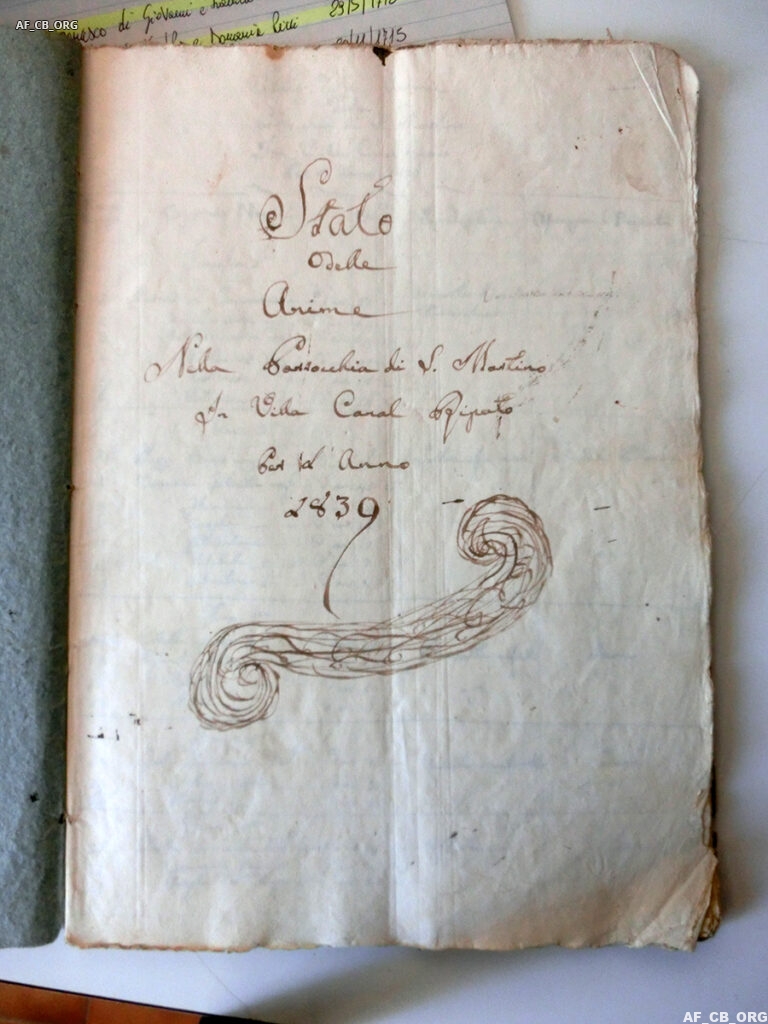 AF_CB_ORG
di Giovanni e
29/5/1715
e Domenica
/11/1715
Stato
delle
Anime
Nella Parrocchia di S. Martino
In Villa Canal Ripato
Per l' Anno
1839
AF_CB_ORG